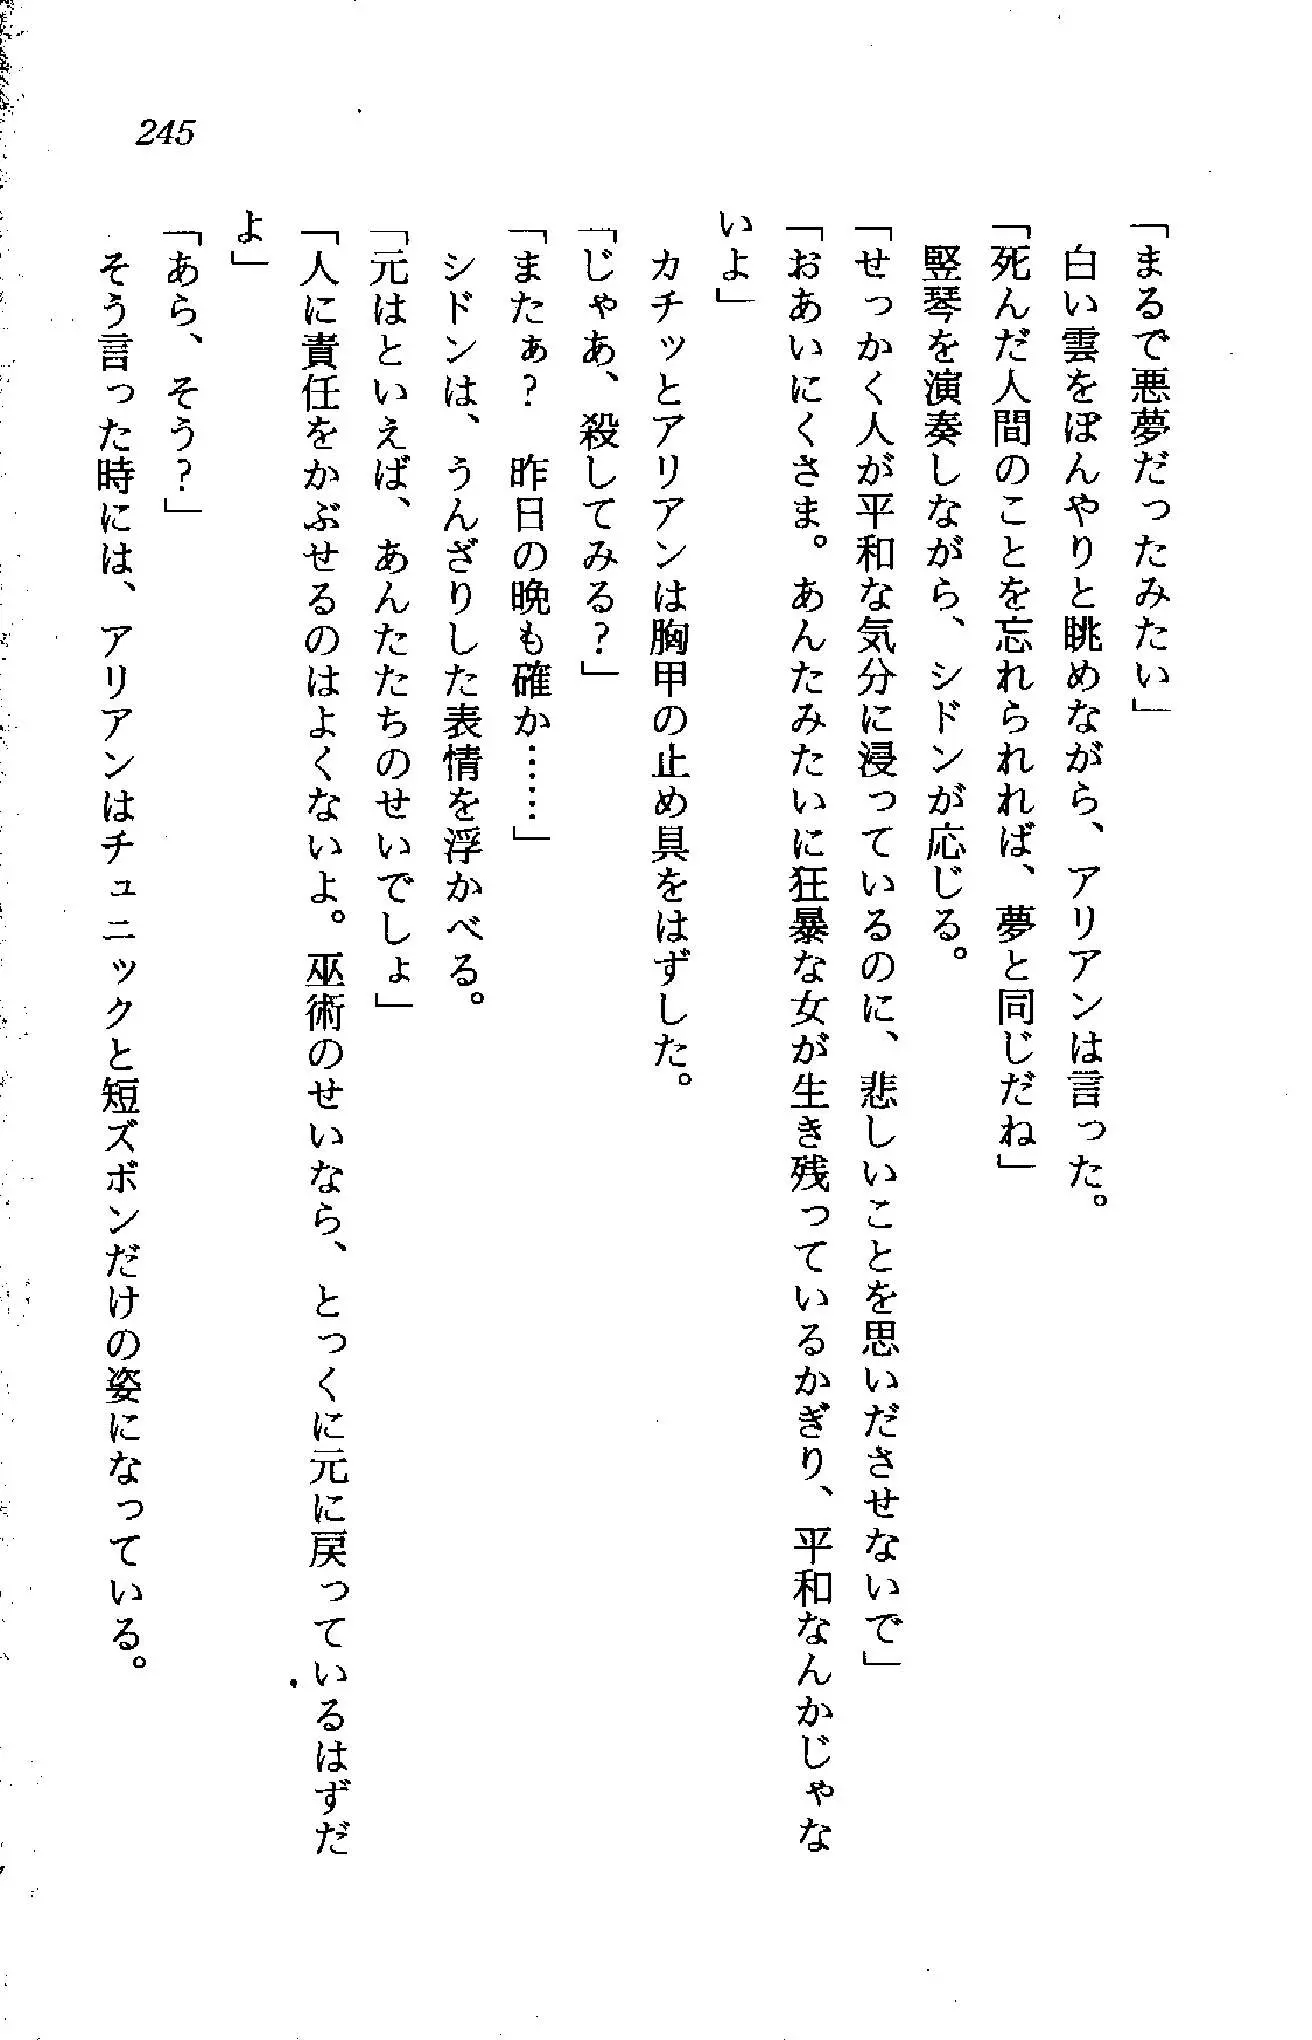 245
「まるで悪夢だったみたい」
白い雲をぼんやりと眺めながら、アリアンは言った。
「死んだ人間のことを忘れられれば、夢と同じだね」
竪琴を演奏しながら、シドンが応じる。
「せっかく人が平和な気分に浸っているのに、悲しいことを思いださせないで」
「おあいにくさま。あんたみたいに狂暴な女が生き残っているかぎり、平和なんかじゃな
いよ」
カチッとアリアンは胸甲の止め具をはずした。
「じゃあ、殺してみる？」
「またぁ？　昨日の晩も確か……」
シドンは、うんざりした表情を浮かべる。
「元はといえば、あんたたちのせいでしょ」
「人に責任をかぶせるのはよくないよ。巫術のせいなら、とっくに元に戻っているはずだ
よ」
「あら、そう？」
そう言った時には、アリアンはチュニックと短ズボンだけの姿になっている。